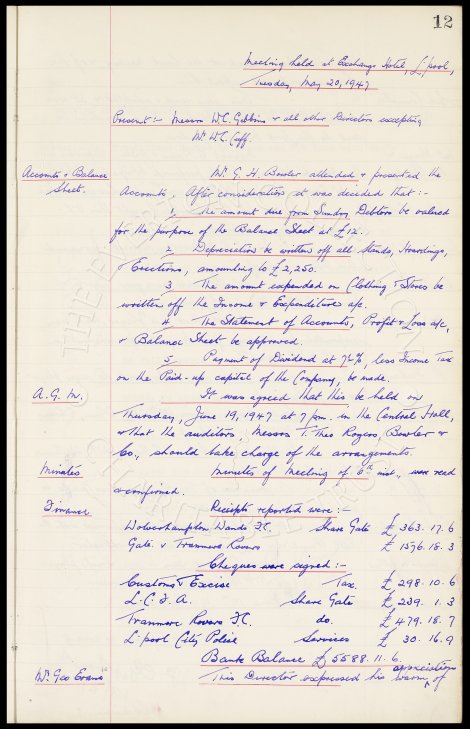 12
Meeting held at Exchange Hotel, L'pool,
Tuesday, May 20, 1947
Present:- Messrs W.C. Gibbins & all other Directors excepting
Mr. W.C. Cuff.
Accounts & Balance Sheet.
Mr. G. H. Bowler attended & presented the
Accounts. After consideration it was decided that:-
1. The amount due from Sundry Debtors be valued
for the purpose of the Balance Sheet at £12.
2 Depreciation be written off all Stands, Hoardings,
& Erections, amounting to £2,250.
3 The amount expended on Clothing & Stores be
written off the Income & Expenditure a/c.
4. The Statement of Accounts, Profit & Loss a/c,
& Balance Sheet be approved.
5. Payment of Dividend at 7½%, less Income Tax
on the Paid-up capital of the Company, be made.
A.G.M.
It was agreed that this be held on
Thursday, June 19, 1947 at 7 p.m. in the Central Hall,
& that the auditors, Messrs T. Theo Rogers, Bowler &
Co., should take charge of the arrangements.
Minutes
Minutes of Meeting of 6th inst., were read
& confirmed.
Finance
Receipts reported were:-
Wolverhampton Wands F.C. Share Gate £ 363.17.6
Gate v Tranmere Rovers £ 1576.18.3
Cheques were signed:-
Customs & Excise Tax £ 298.10.6
L.C.F.A. Share Gate £ 239.1.3
Tranmere Rovers F.C. do. £ 479.18.7
L'pool City Police Services £ 30.16.9
Bank Balance £5588.11.6.
Mr. Geo Evans
This Director expressed his warm appreciation of